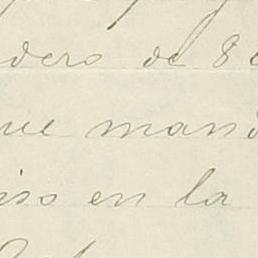 dero de 8
ue mand
iso en la